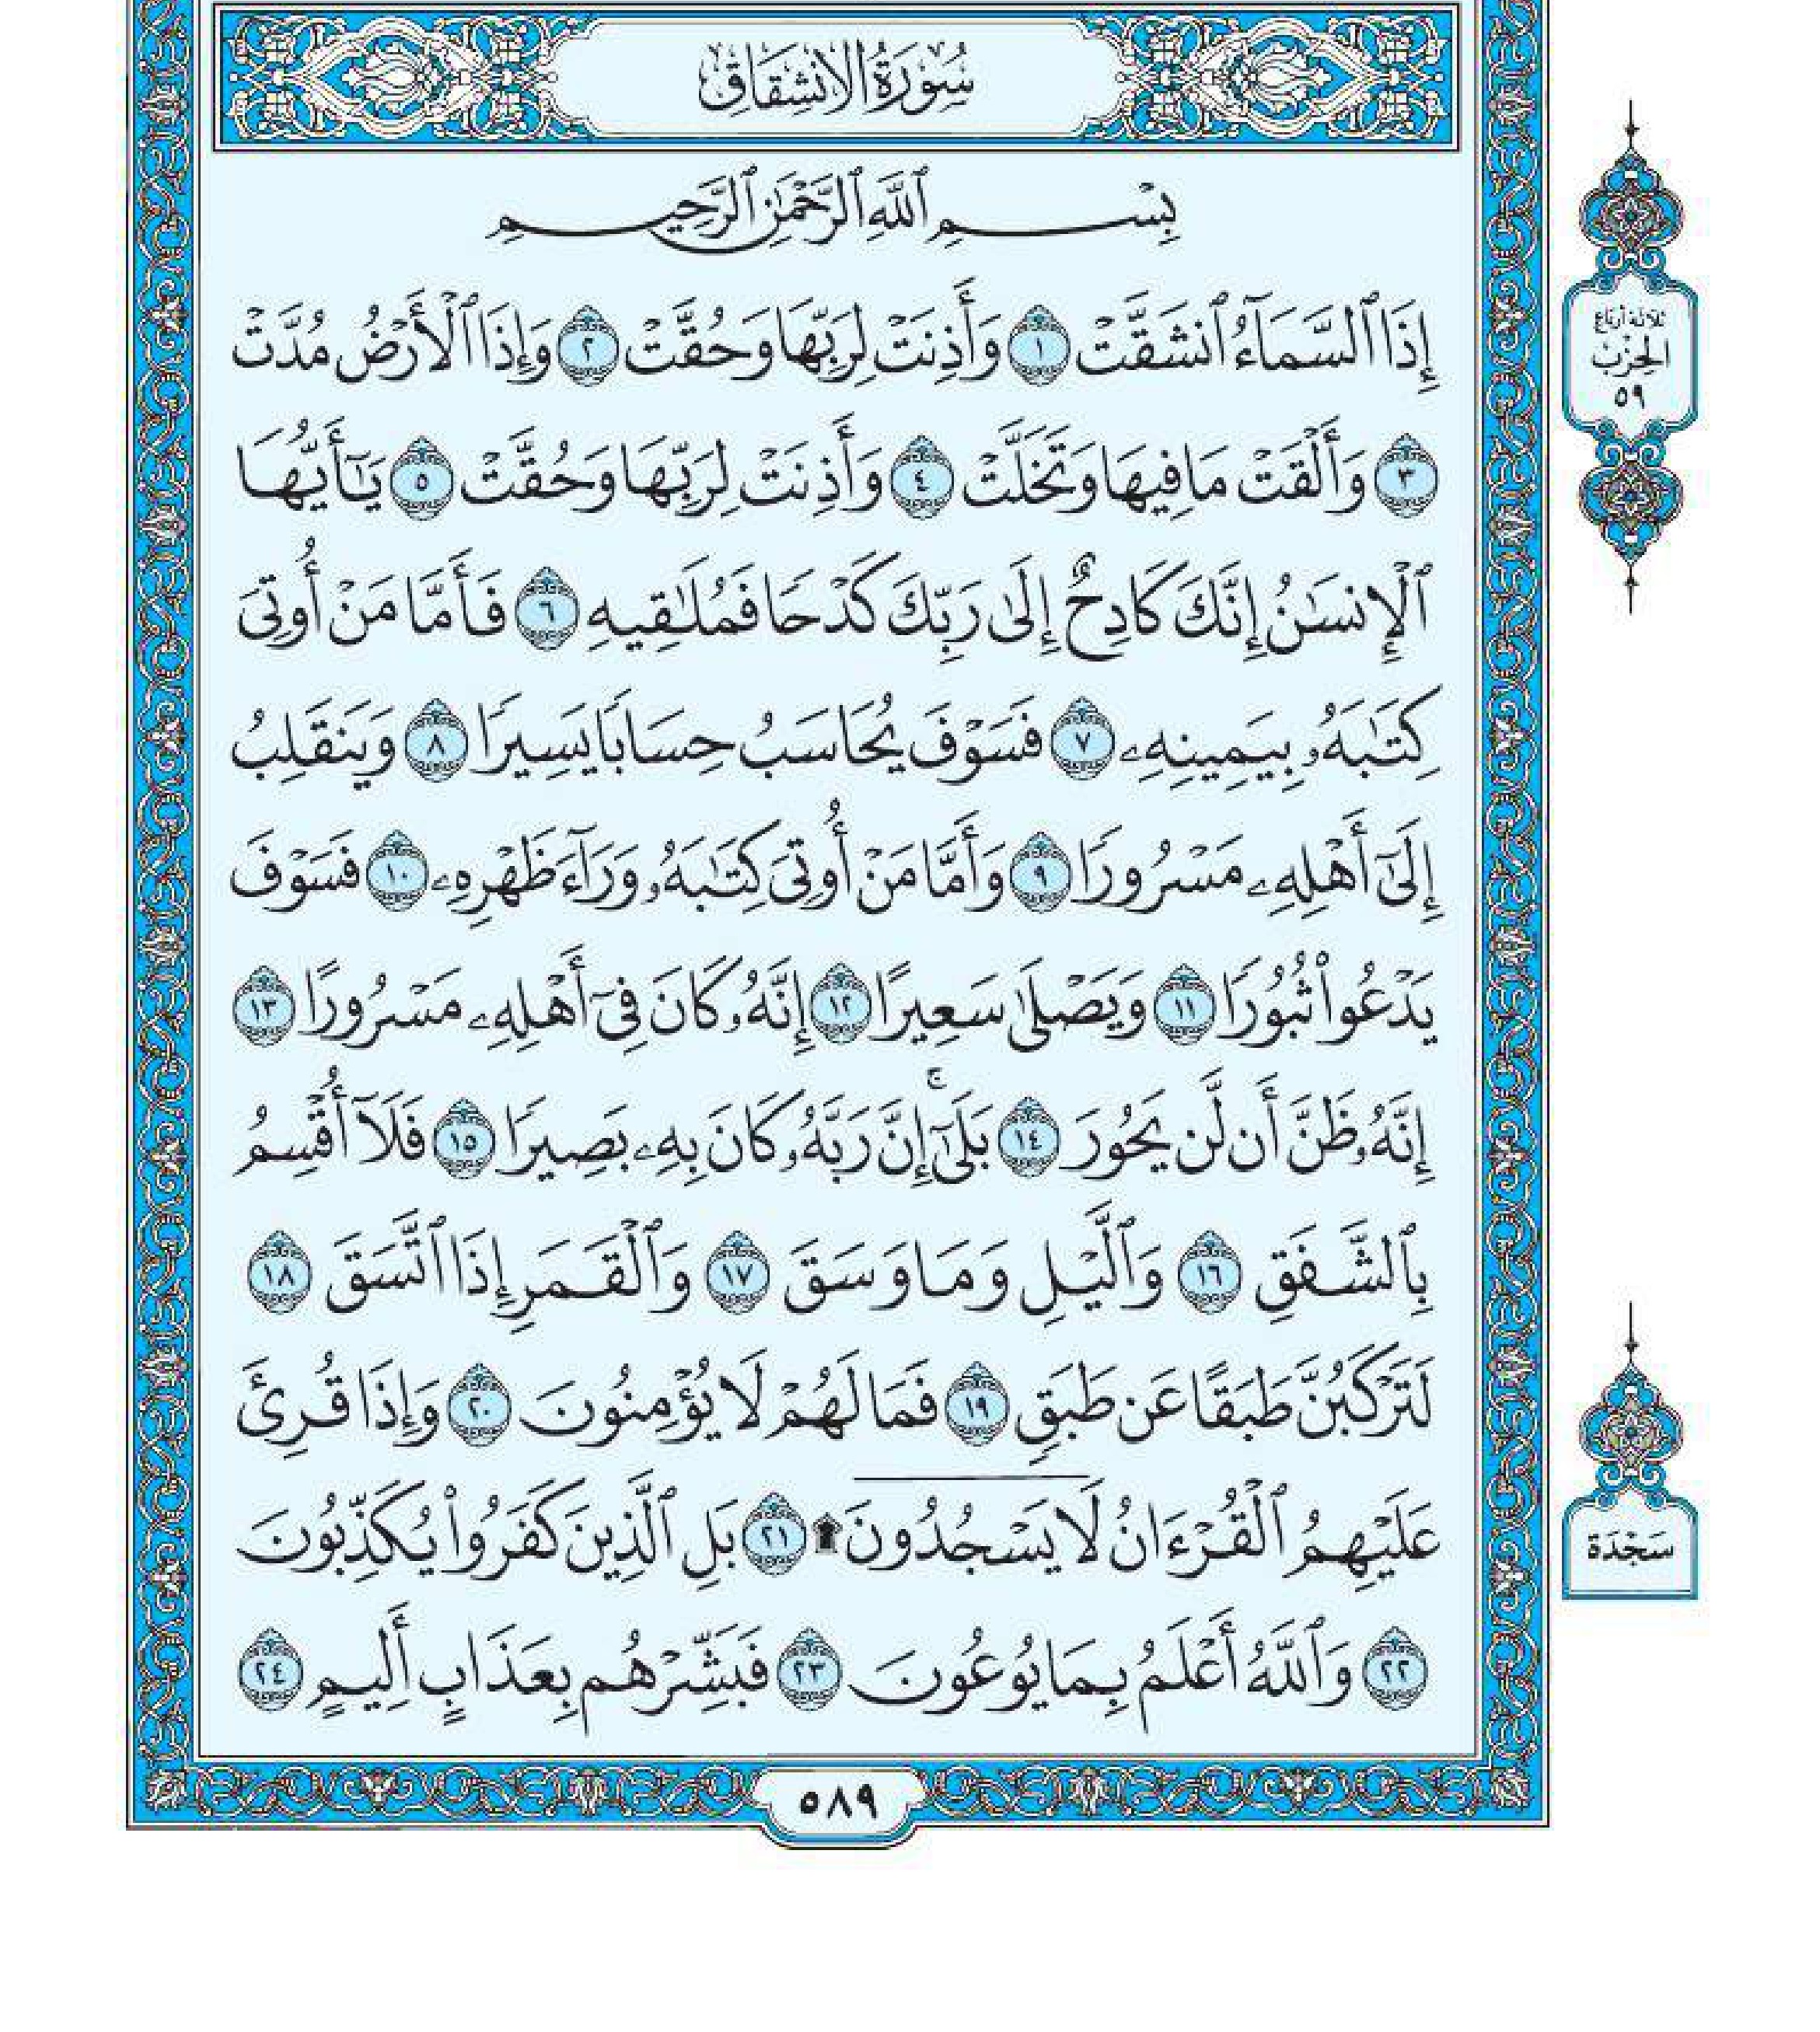 سُورَةُ الانشقاق
بِسْمِ ٱللَّهِ ٱلرَّحْمَٰنِ ٱلرَّحِيمِ
إِذَا ٱلسَّمَآءُ ٱنشَقَّتْ ١ وَأَذِنَتْ لِرَبِّهَا وَحُقَّتْ ٢ وَإِذَا ٱلْأَرْضُ مُدَّتْ
ثلاثة أرباع
الحِزْب
٥٩
٣ وَأَلْقَتْ مَا فِيهَا وَتَخَلَّتْ ٤ وَأَذِنَتْ لِرَبِّهَا وَحُقَّتْ ٥ يَٰٓأَيُّهَا
ٱلْإِنسَٰنُ إِنَّكَ كَادِحٌ إِلَىٰ رَبِّكَ كَدْحًا فَمُلَٰقِيهِ ٦ فَأَمَّا مَنْ أُوتِىَ
كِتَٰبَهُۥ بِيَمِينِهِۦ ٧ فَسَوْفَ يُحَاسَبُ حِسَابًا يَسِيرًا ٨ وَيَنقَلِبُ
إِلَىٰٓ أَهْلِهِۦ مَسْرُورًا ٩ وَأَمَّا مَنْ أُوتِىَ كِتَٰبَهُۥ وَرَآءَ ظَهْرِهِۦ ١٠ فَسَوْفَ
يَدْعُوا۟ ثُبُورًا ١١ وَيَصْلَىٰ سَعِيرًا ١٢ إِنَّهُۥ كَانَ فِىٓ أَهْلِهِۦ مَسْرُورًا ١٣
إِنَّهُۥ ظَنَّ أَن لَّن يَحُورَ ١٤ بَلَىٰٓۚ إِنَّ رَبَّهُۥ كَانَ بِهِۦ بَصِيرًا ١٥ فَلَآ أُقْسِمُ
بِٱلشَّفَقِ ١٦ وَٱلَّيْلِ وَمَا وَسَقَ ١٧ وَٱلْقَمَرِ إِذَا ٱتَّسَقَ ١٨
لَتَرْكَبُنَّ طَبَقًا عَن طَبَقٍ ١٩ فَمَا لَهُمْ لَا يُؤْمِنُونَ ٢٠ وَإِذَا قُرِئَ
عَلَيْهِمُ ٱلْقُرْءَانُ لَا يَسْجُدُونَ ۩ ٢١ بَلِ ٱلَّذِينَ كَفَرُوا۟ يُكَذِّبُونَ
سَجْدَة
٢٢ وَٱللَّهُ أَعْلَمُ بِمَا يُوعُونَ ٢٣ فَبَشِّرْهُم بِعَذَابٍ أَلِيمٍ ٢٤
٥٨٩